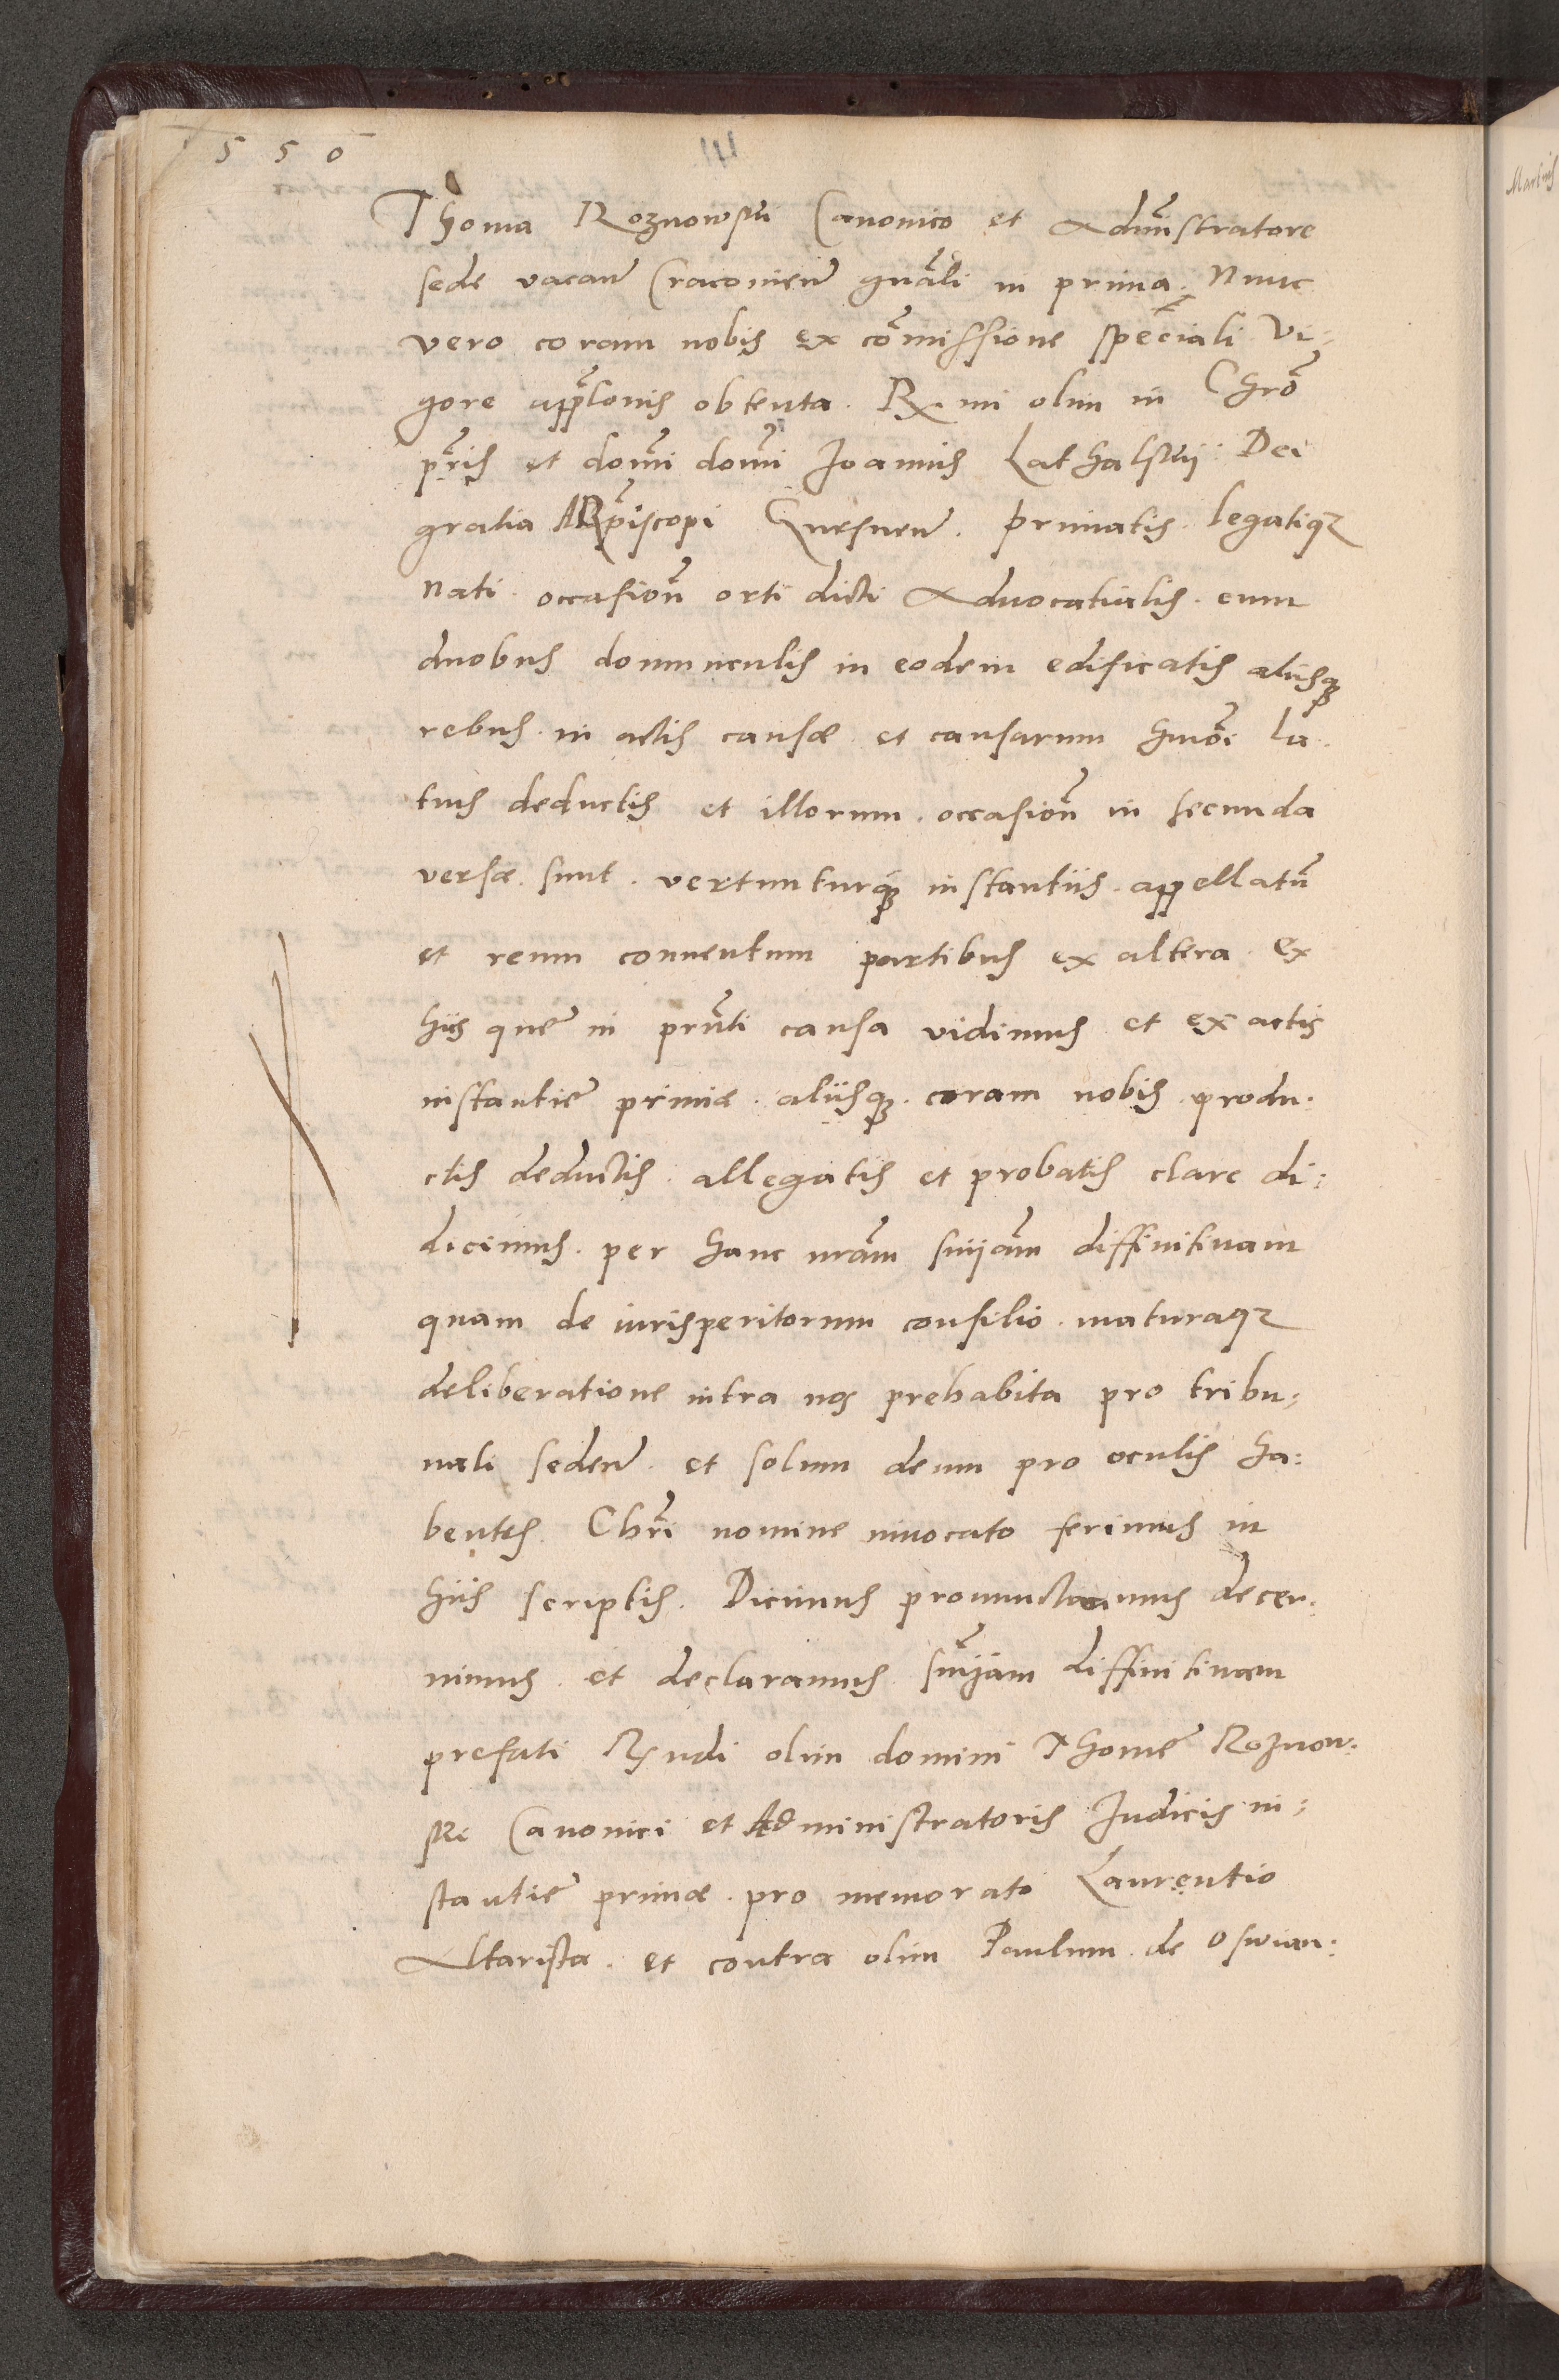 1550
Thoma Roznowski Canonico et Admĩstratore
sede vacañ Cracovieñ gñali in prima. Nunc
vero coram nobis ex cõmissione speciali Vi:
gore applõnis obtenta. Rx mi olim in Chrõ
pr̃is et domĩ domĩ Joannis Lathalskij Dei
gratia ARpĩscopi Gnesneñ. primatis. legatiqꝫ
nati. occasioñ orti dicti Advocatialis. cum
duobus domunculis in eodem edificatis aliisqꝫ
rebus. in actis causæ et causarum hmõi la.
tius deductis et illorum. occasioñ in secunda
versæ sunt. vertunturqꝫ instantiis. appellatũ
et reum conventum partibus ex altera. Ex
hiis que in prñti causa vidimus et ex actis
instantie primæ. aliisqꝫ. coram nobis produ.
ctis deductis. allegatis et probatis clare di:
dicimus. per hanc nrãm snĩjam diffinitivam
quam de iurisperitorum consilio. maturaqꝫ
deliberatione intra nos prehabita pro tribu:
nali sedeñ. et solum deum pro oculis ha:
bentes. Chrĩ nomine invocato ferimus in
hiis scriptis. Dicimus pronunctiamus decer.
nimus. et declaramus snĩjam diffinitivam
prefati Rx̃ndi olim domini Thome Roznow.
ski Canonici et Administratoris Judicis in:
stantie primæ. pro memorato Laurentio
Altarista. et contra olim Paulum de Oswian: